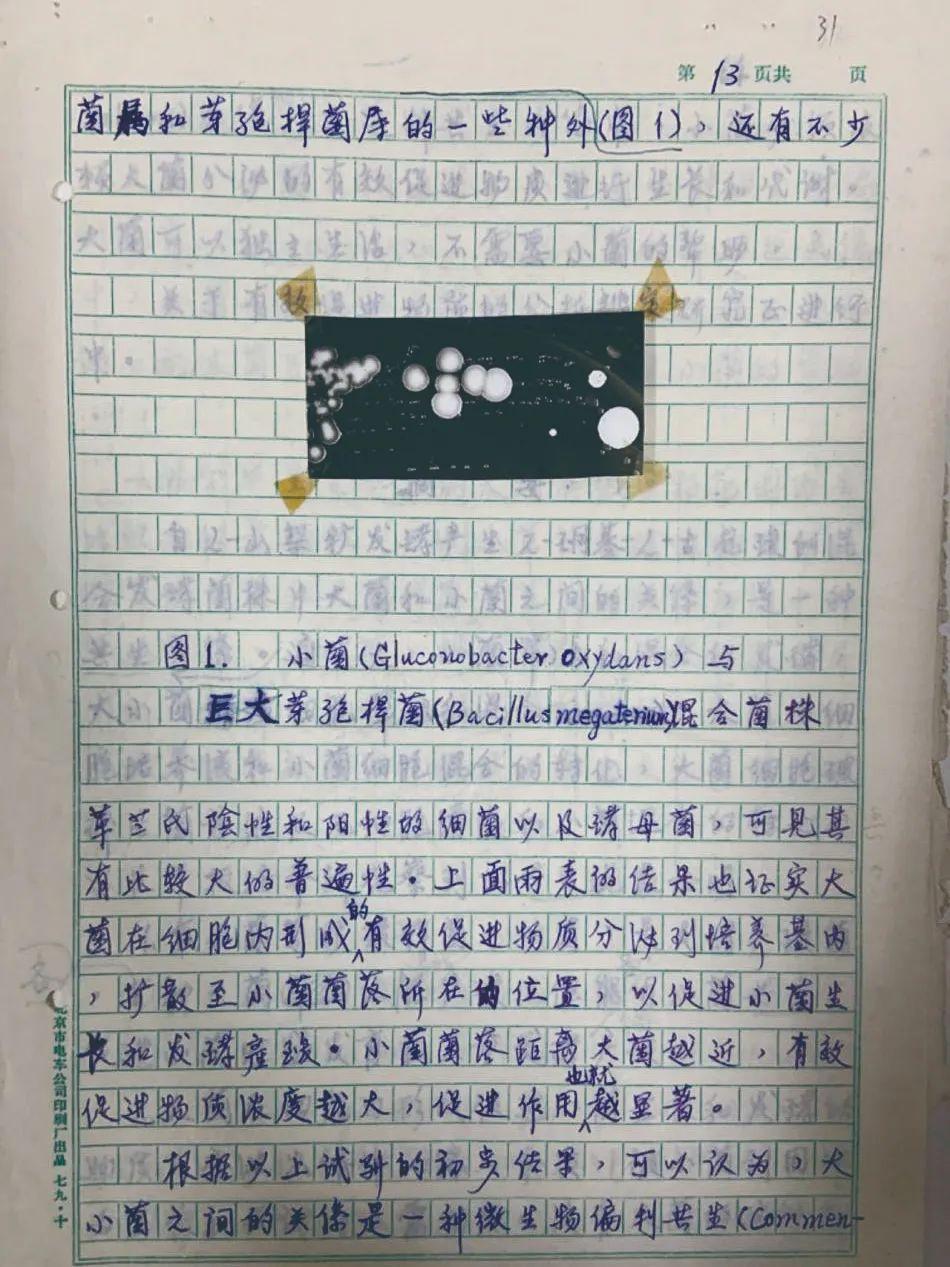 31
第13页共 页
菌属和芽孢捍菌属的一些种外(图1),还有不少
图1. 小菌(Gluconobacter oxydans)与
巨大芽孢捍菌(Bacillus megaterium)混合菌株
革兰氏陰性和阳性的细菌以及酵母菌,可见其
有比较大的普遍性。上面兩表的结果也证实大
菌在细胞内形成的有效促进物质分泌到培养基内
,扩散至小菌菌落所在的位置,以促进小菌生
长和发酵產酸。小菌菌落距离大菌越近,有效
促进物质浓度越大,促进作用也就越显著。
根据以上试驗的初步结果,可以认为,大
小菌之间的关係是一种微生物偏利共生(Commen-
北京市电车公司印刷厂出品 七九·十